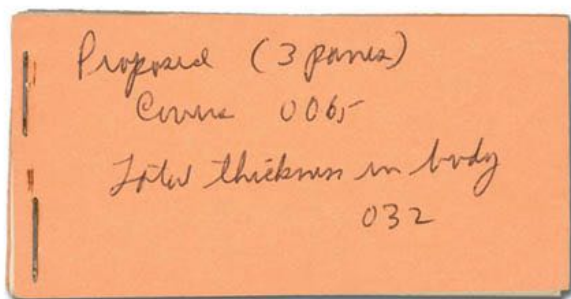 Proposed (3 panes)
Covers 0065
Total thickness in body
032